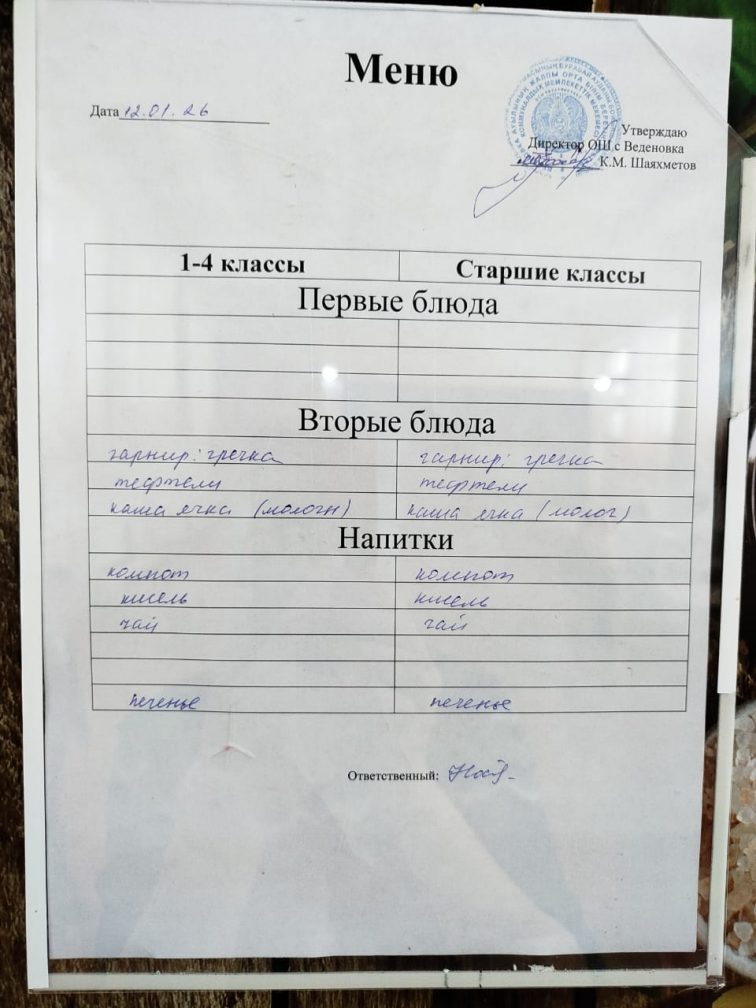 Меню
Дата 12.01.26
Утверждаю
Директор ОШ с Веденовка
К.М. Шаяхметов
1-4 классы Старшие классы
Первые блюда
Вторые блюда
гарнир: гречка гарнир: гречка
тефтели тефтели
каша ячка (молочн) каша ячка (молоч)
Напитки
компот компот
кисель кисель
чай чай
печенье печенье
Ответственный: